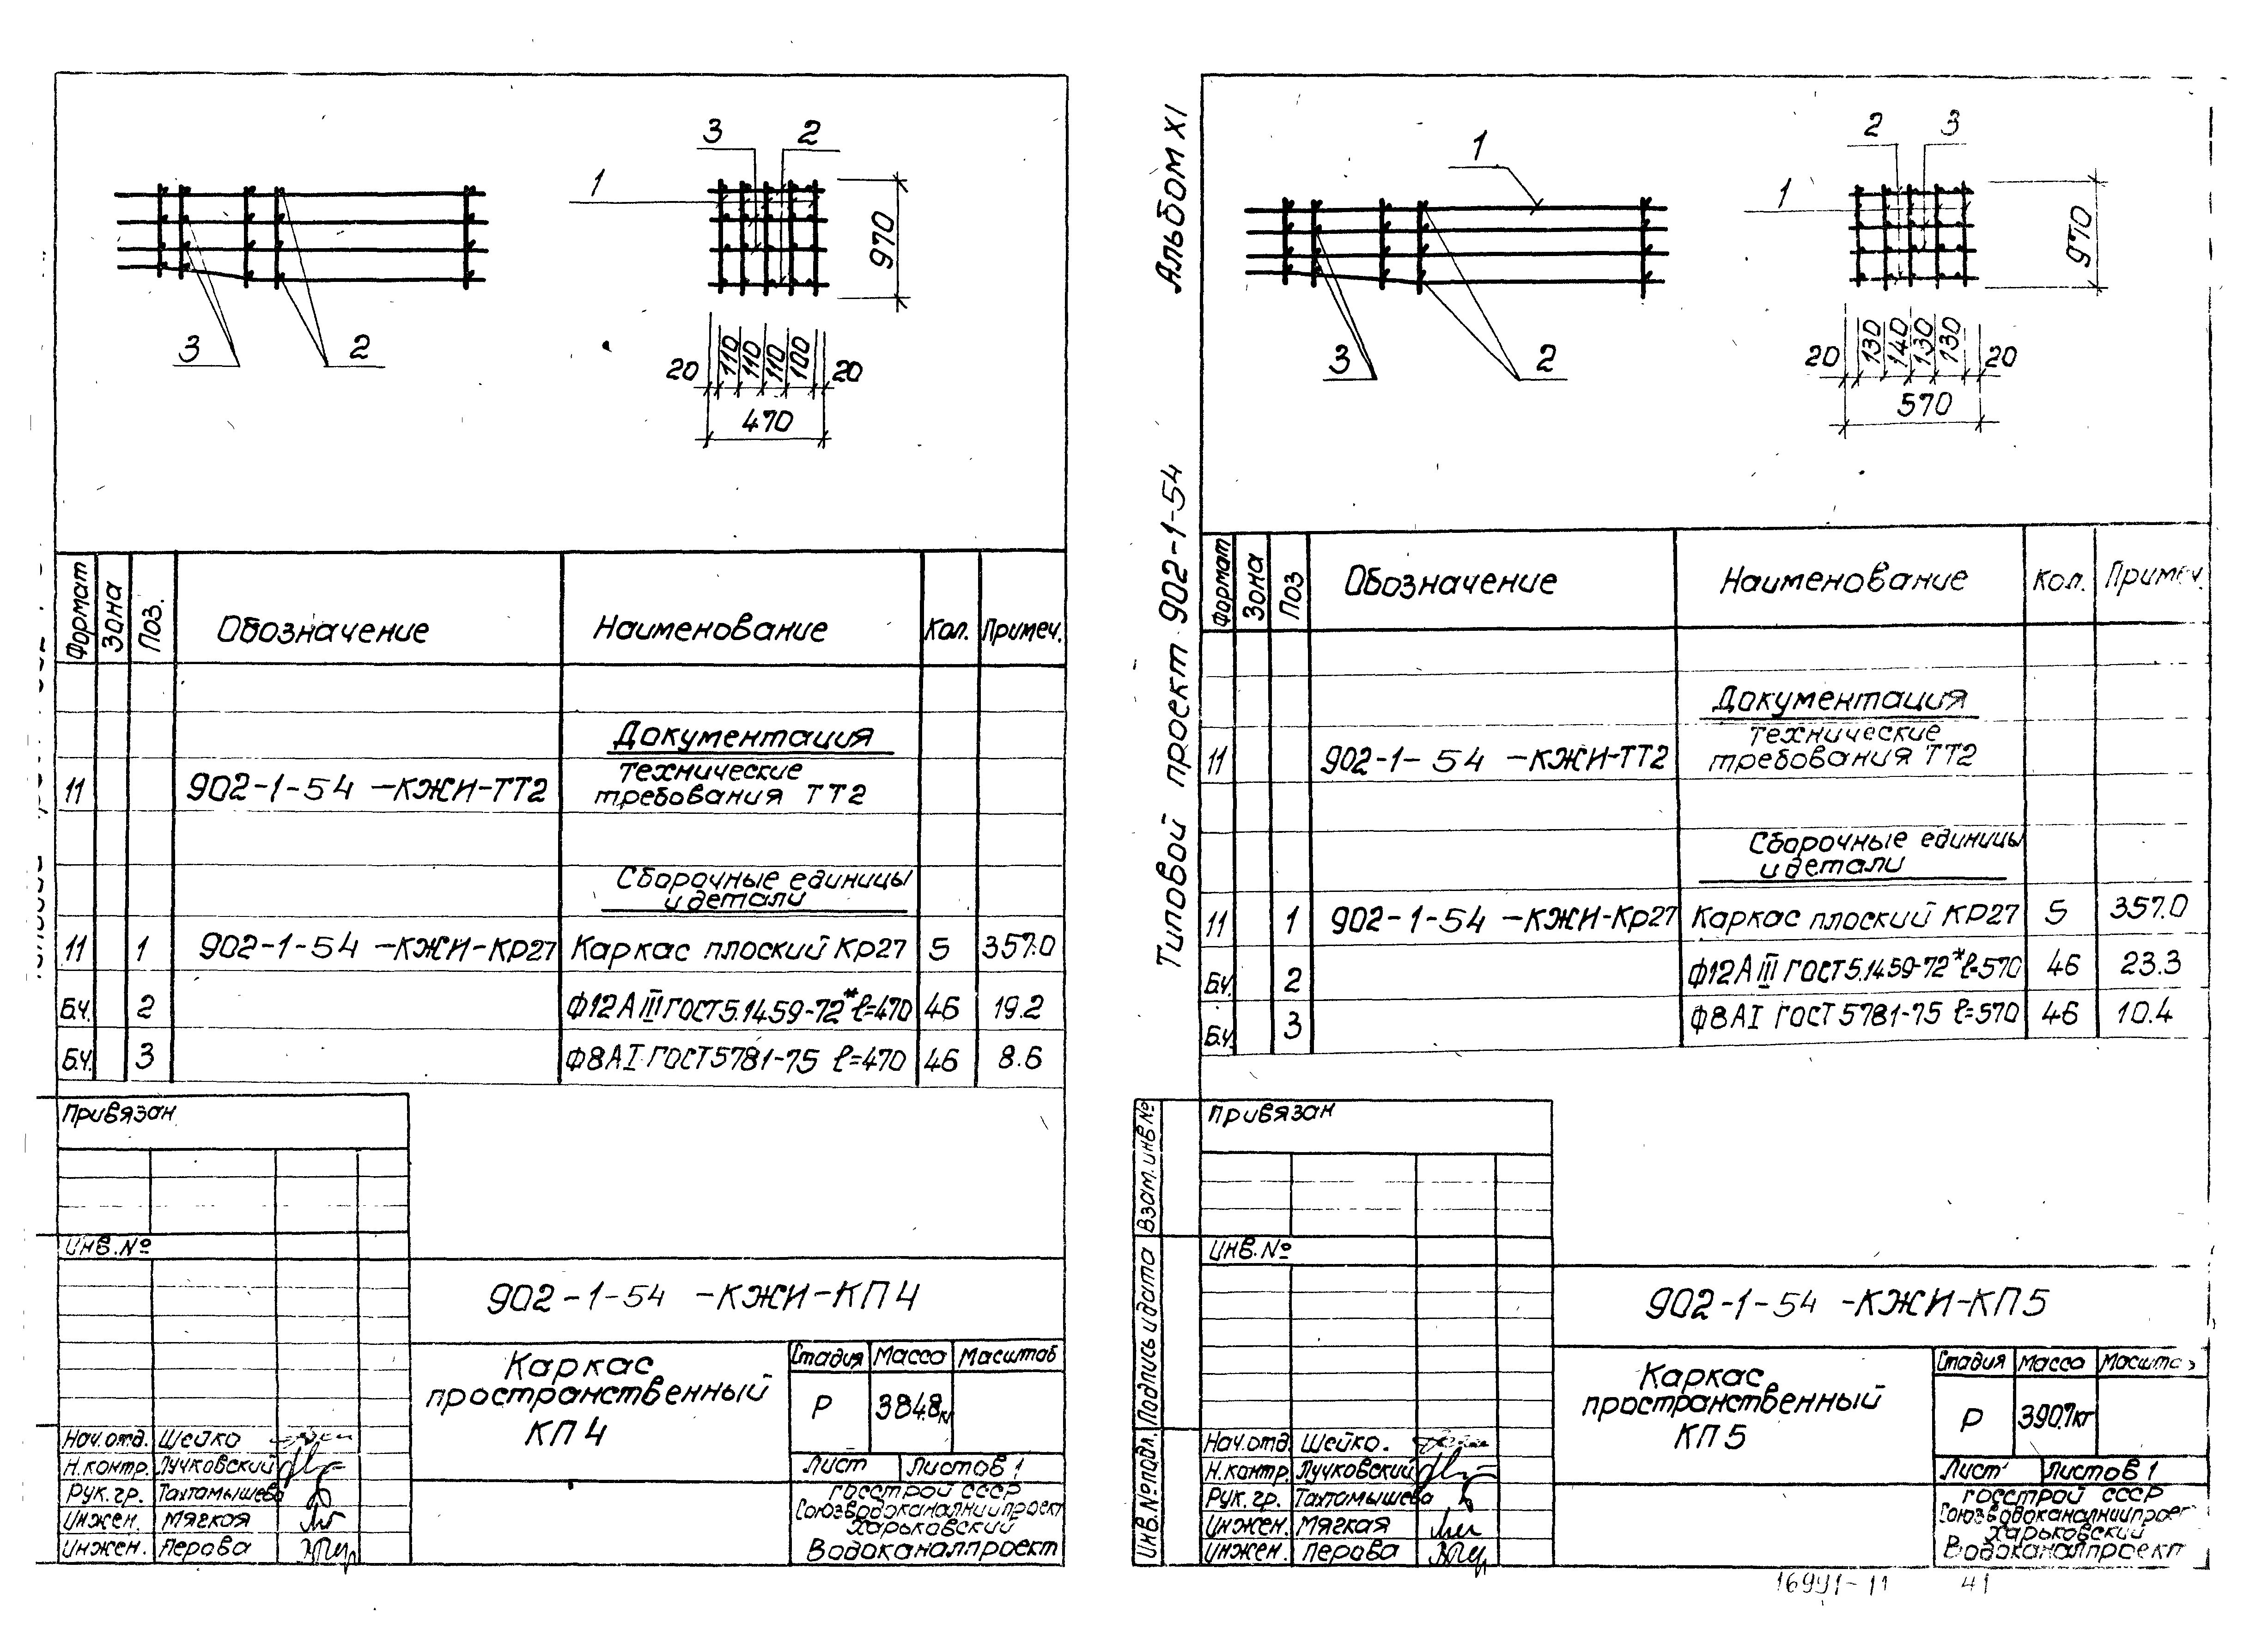 1
3
2
3
2
970
20
110
110
110
100
20
470
Формат
Зона
Поз.
Обозначение
Наименование
Кол.
Примеч.
Документация
11
902-1-54 -КЖИ-ТТ2
технические
требования ТТ2
Сборочные единицы
и детали
11 1 902-1-54 -КЖИ-Кр27 Каркас плоский Кр27 5 357.0
Б.ч. 2 Ф12АIII ГОСТ5.1459-72* ℓ=470 46 19.2
Б.ч. 3 Ф8АI ГОСТ5781-75 ℓ=470 46 8.6
Привязан
Инв.№
902-1-54 -КЖИ-КП4
Каркас
пространственный
КП4
Стадия Масса Масштаб
Р 384.8кг
Лист Листов 1
Госстрой СССР
Союзводоканалниипроект
Харьковский
Водоканалпроект
Нач.отд. Шейко
Н.контр. Лучковский
Рук.гр. Тахтамышева
Инжен. Мягкая
Инжен. Перова
Альбом XI
Типовой проект 902-1-54
1
3
2
2
3
1
970
20
130
140
130
130
20
570
Формат
Зона
Поз
Обозначение
Наименование
Кол.
Примеч.
Документация
11
902-1-54 -КЖИ-ТТ2
технические
требования ТТ2
Сборочные единицы
и детали
11 1 902-1-54 -КЖИ-Кр27 Каркас плоский КР27 5 357.0
Б.ч. 2 Ф12АIII ГОСТ5.1459-72* ℓ=570 46 23.3
Б.ч. 3 Ф8АI ГОСТ5781-75 ℓ=570 46 10.4
Взам.инв№
Подпись и дата
Инв.№подл.
Привязан
Инв.№
902-1-54 -КЖИ-КП5
Каркас
пространственный
КП5
Стадия Масса Масшта
Р 390.7кг
Лист Листов 1
Госстрой СССР
Союзводоканалниипроек
Харьковский
Водоканалпроект
Нач.отд. Шейко.
Н.контр. Лучковский
Рук.гр. Тахтамышева
Инжен. Мягкая
Инжен. Перова
16991-11 41